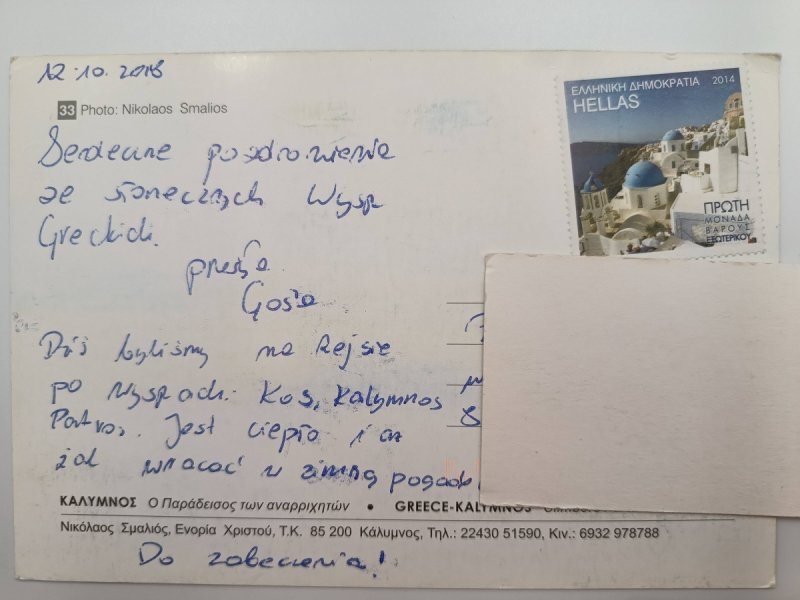 12.10.2018
33 Photo: Nikolaos Smalios
ΕΛΛΗΝΙΚΗ ΔΗΜΟΚΡΑΤΙΑ 2014
HELLAS
ΠΡΩΤΗ
ΜΟΝΑΔΑ
ΒΑΡΟΥΣ
ΕΞΩΤΕΡΙΚΟΥ
Serdeczne pozdrowienia
ze słonecznych Wysp
Greckich.
przesyła
Gosia
Dziś byliśmy na Rejsie
po wyspach: Kos, Kalymnos
Patros. Jest ciepło i aż
żal wracać w zimną
ΚΑΛΥΜΝΟΣ Ο Παράδεισος των αναρριχητών • GREECE-KALYMNOS
Νικόλαος Σμαλιός, Ενορία Χριστού, Τ.Κ. 85 200 Κάλυμνος, Τηλ.: 22430 51590, Κιν.: 6932 978788
Do zobaczenia!